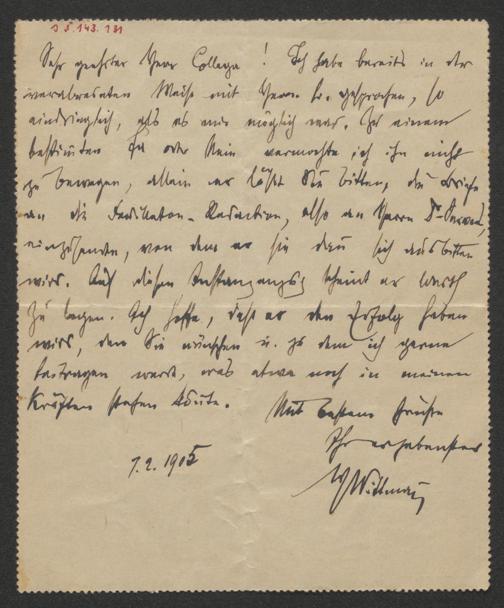 I 5.143.131
Sehr geehrter Herr Collega! Ich habe bereits in der
Weise mit Herrn Dr. gesprochen, so
eindringlich, als es mir möglich war. Zu einem
bestimmten Ja oder Nein vermochte ich ihn nicht
zu bewegen, allein er läßt Sie bitten, die Briefe
an die Feuilleton-Redaction, also an Herrn Dr.
einzusenden, von dem er sie dann sich ausbitten
wird. Auf diesen scheint er Werth
zu legen. Ich hoffe, daß es den Erfolg haben
wird, den Sie wünschen u. zu dem ich gerne
beitragen werde, was etwa noch in meinen
Kräften stehen könnte. Mit bestem Gruße
Ihr ergebenster
7.2.1905